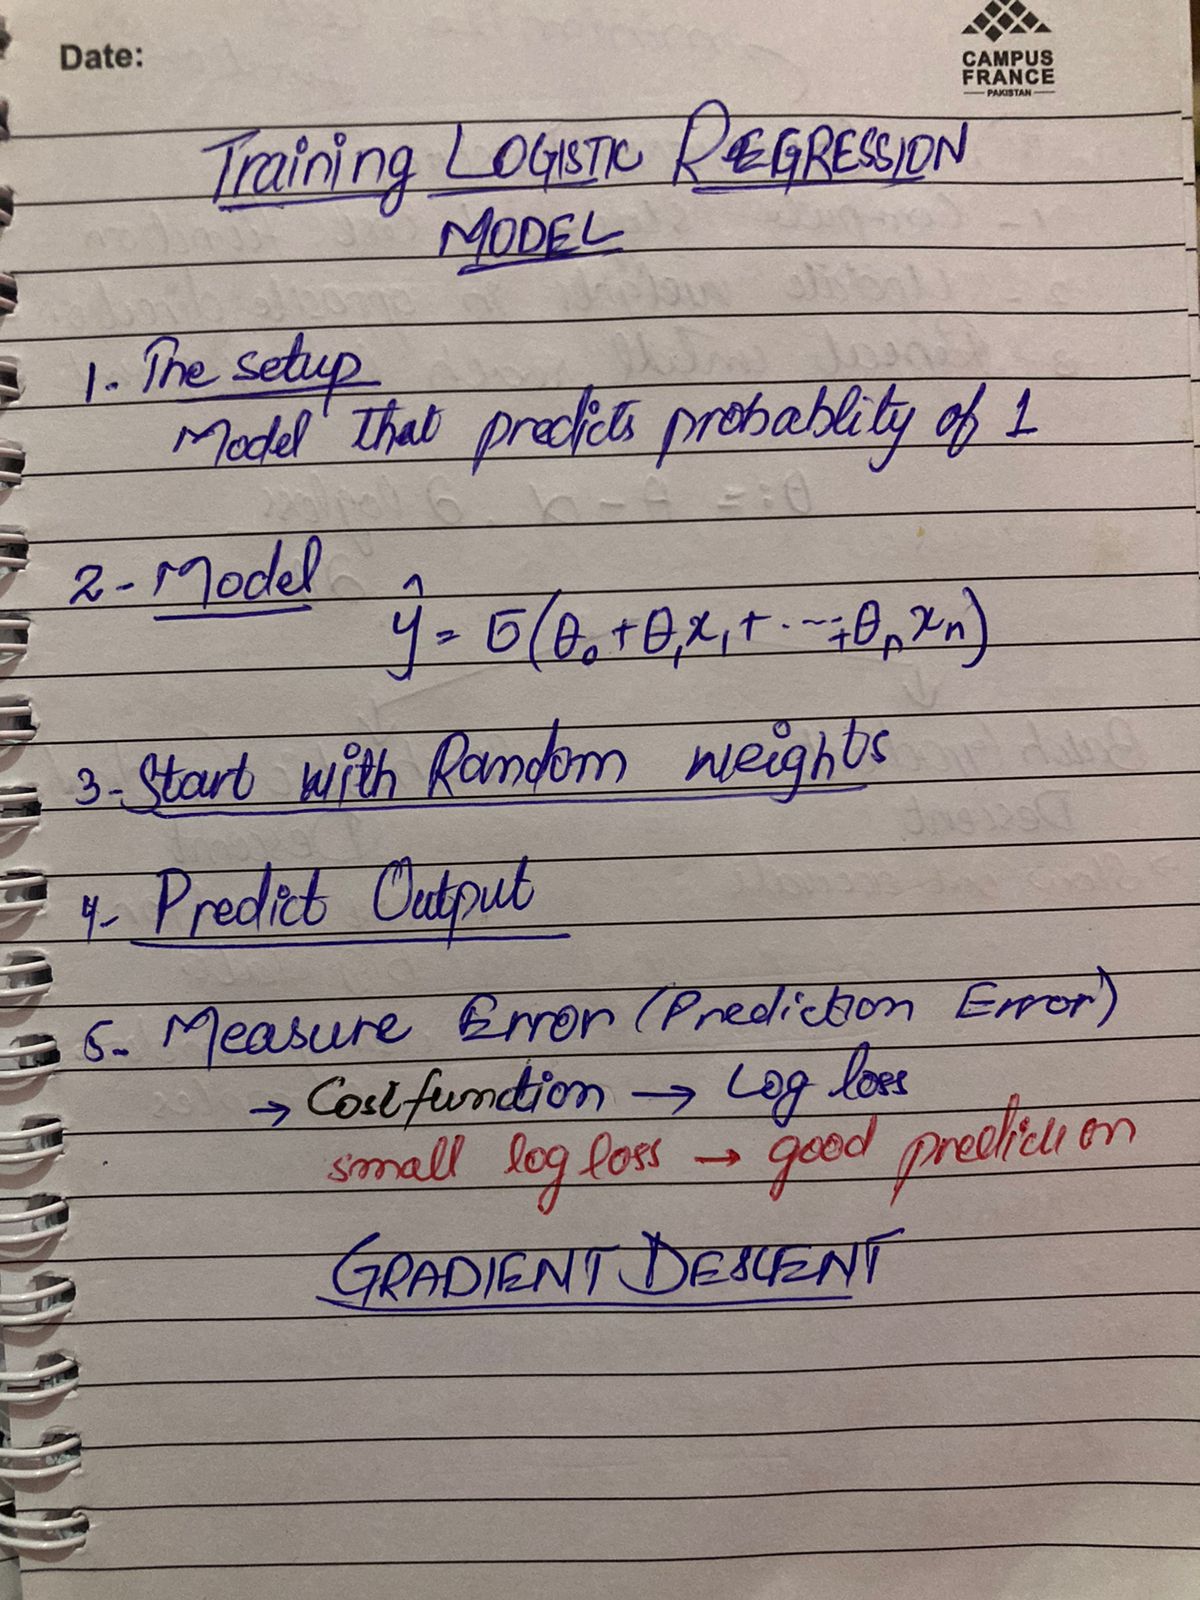 Date:
CAMPUS
FRANCE
PAKISTAN
Training LOGISTIC REGRESSION
MODEL
1. The setup
Model that predicts probablity of 1
2- Model
ŷ = σ(θ₀ + θ₁x₁ + ... + θₙxₙ)
3- Start with Random weights
4- Predict Output
5- Measure Error (Prediction Error)
→ Cost function → Log loss
small log loss → good prediction
GRADIENT DESCENT